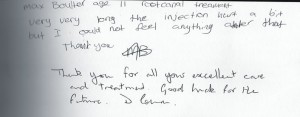 Max Boulter age 11 root canal treatment
very very long the injection hurt a bit
but I could not feel anything after that
Thank you
Thank you for all your excellent care
and treatment. Good luck for the
future. D